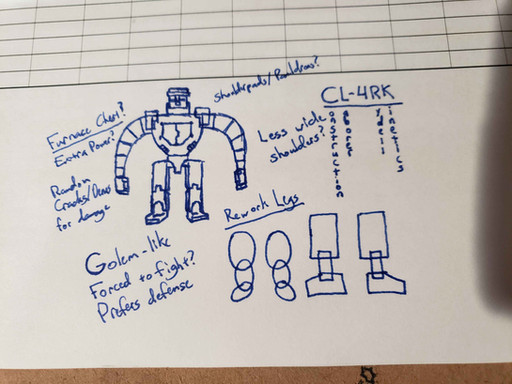 Shoulderpads/Pauldrons?
Furnace Chest?
Extra Power?
Random
Cracks/Dents
for damage
Less wide
shoulders?
CL-4RK
onstruction
aborer
ydell
inetics
Golem-like
Forced to fight?
Prefers defense
Rework Legs